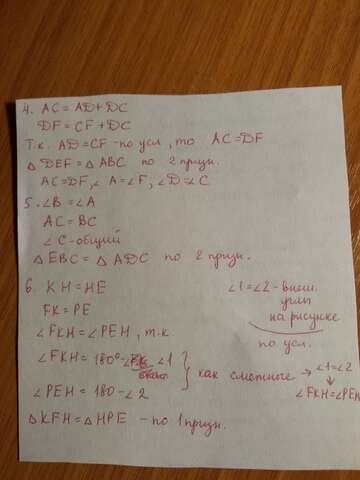 4. AC = AD + DC
DF = CF + DC
Т.к. AD = CF - по усл, то AC = DF
△ DEF = △ ABC по 2 призн.
AC = DF, ∠A = ∠F, ∠D = ∠C
5. ∠B = ∠A
AC = BC
∠ C - общий
△ EBC = △ ADC по 2 призн.
6. KH = HE
FK = PE
∠FKH = ∠PEH, т.к.
∠FKH = 180° - ∠1
∠PEH = 180 - ∠2
как смежные → ∠1 = ∠2
↓
∠FKH = ∠PEH
∠1 = ∠2 - внеш.
углы
на рисунке
по усл.
△ KFH = △ HPE - по 1 призн.